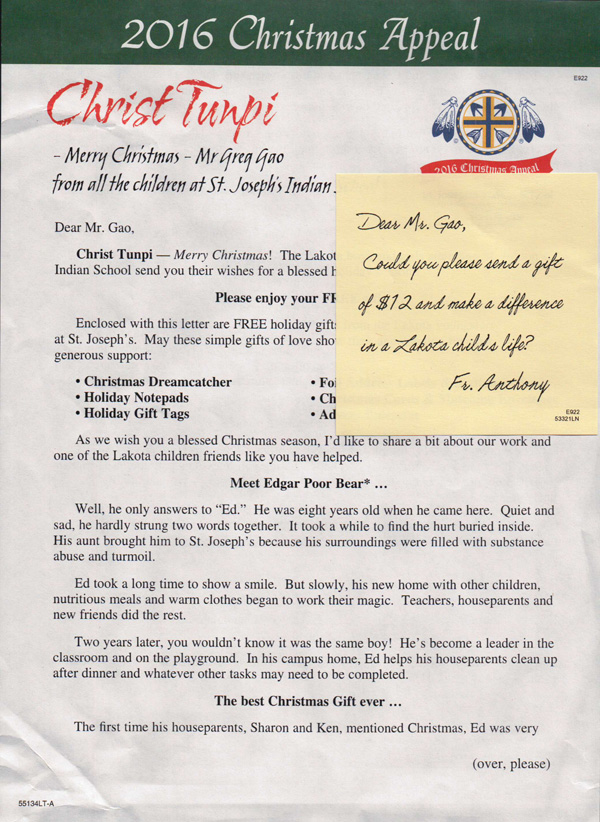 2016 Christmas Appeal
E922
Christ Tunpi
2016 Christmas Appeal
- Merry Christmas - Mr Greg Gao
from all the children at St. Joseph's Indian
Dear Mr. Gao,
Christ Tunpi — Merry Christmas! The Lakot
Indian School send you their wishes for a blessed h
Please enjoy your FR
Enclosed with this letter are FREE holiday gift
at St. Joseph's. May these simple gifts of love sho
generous support:
• Christmas Dreamcatcher
• Holiday Notepads
• Holiday Gift Tags
• Fo
• Ch
• Ad
Dear Mr. Gao,
Could you please send a gift
of $12 and make a difference
in a Lakota child's life?
Fr. Anthony
E922
53321LN
As we wish you a blessed Christmas season, I'd like to share a bit about our work and
one of the Lakota children friends like you have helped.
Meet Edgar Poor Bear* …
Well, he only answers to "Ed." He was eight years old when he came here. Quiet and
sad, he hardly strung two words together. It took a while to find the hurt buried inside.
His aunt brought him to St. Joseph's because his surroundings were filled with substance
abuse and turmoil.
Ed took a long time to show a smile. But slowly, his new home with other children,
nutritious meals and warm clothes began to work their magic. Teachers, houseparents and
new friends did the rest.
Two years later, you wouldn't know it was the same boy! He's become a leader in the
classroom and on the playground. In his campus home, Ed helps his houseparents clean up
after dinner and whatever other tasks may need to be completed.
The best Christmas Gift ever …
The first time his houseparents, Sharon and Ken, mentioned Christmas, Ed was very
(over, please)
55134LT-A